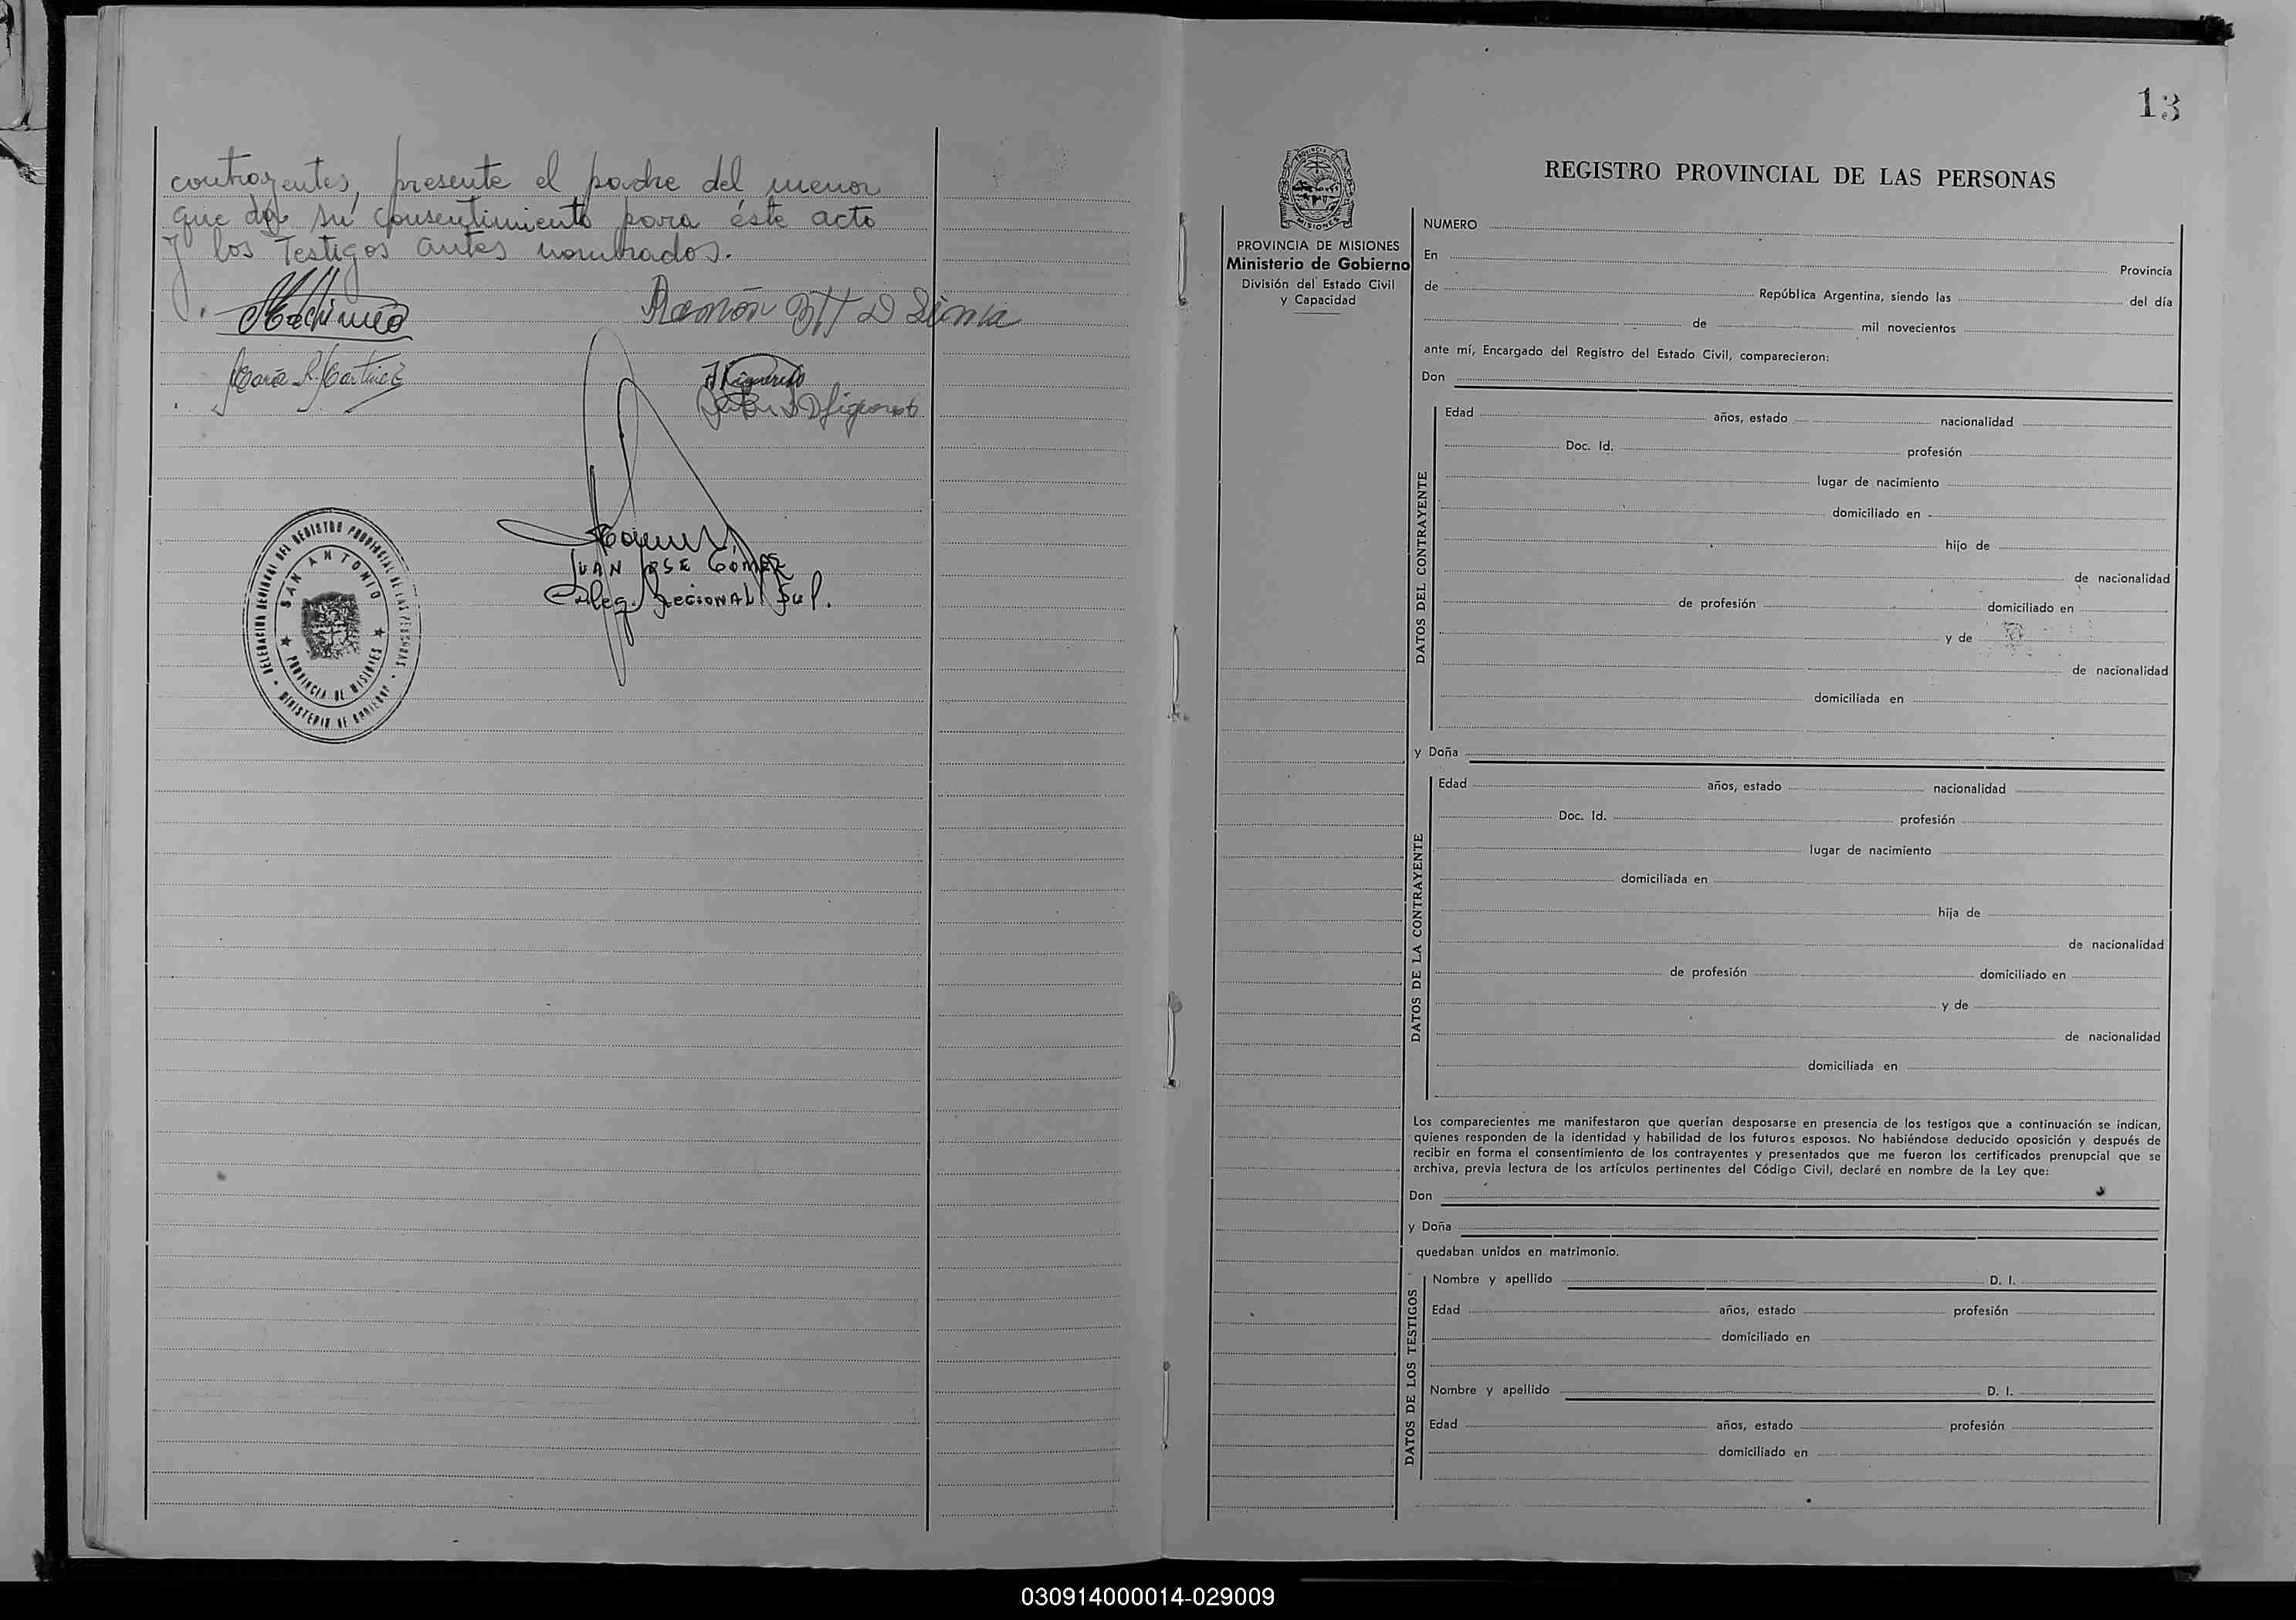 contrayentes, presente el padre del menor
que da su consentimiento para éste acto
y los Testigos antes nombrados.
Ramón D Lima
María R. Martinez
JUAN JOSE GÓMEZ
Deleg. REGIONAL Sup.
DELEGACION REGIONAL DEL REGISTRO PROVINCIAL DE LAS PERSONAS
SAN ANTONIO
PROVINCIA DE MISIONES
MINISTERIO DE GOBIERNO
13
PROVINCIA DE MISIONES
Ministerio de Gobierno
División del Estado Civil
y Capacidad
REGISTRO PROVINCIAL DE LAS PERSONAS
NUMERO
En Provincia
de República Argentina, siendo las del día
de mil novecientos
ante mí, Encargado del Registro del Estado Civil, comparecieron:
Don
DATOS DEL CONTRAYENTE
Edad años, estado nacionalidad
Doc. Id. profesión
lugar de nacimiento
domiciliado en
hijo de
de nacionalidad
de profesión domiciliado en
y de
de nacionalidad
domiciliada en
y Doña
DATOS DE LA CONTRAYENTE
Edad años, estado nacionalidad
Doc. Id. profesión
lugar de nacimiento
domiciliada en
hija de
de nacionalidad
de profesión domiciliado en
y de
de nacionalidad
domiciliada en
Los comparecientes me manifestaron que querían desposarse en presencia de los testigos que a continuación se indican,
quienes responden de la identidad y habilidad de los futuros esposos. No habiéndose deducido oposición y después de
recibir en forma el consentimiento de los contrayentes y presentados que me fueron los certificados prenupcial que se
archiva, previa lectura de los artículos pertinentes del Código Civil, declaré en nombre de la Ley que:
Don
y Doña
quedaban unidos en matrimonio.
DATOS DE LOS TESTIGOS
Nombre y apellido D. I.
Edad años, estado profesión
domiciliado en
Nombre y apellido D. I.
Edad años, estado profesión
domiciliado en
030914000014-029009